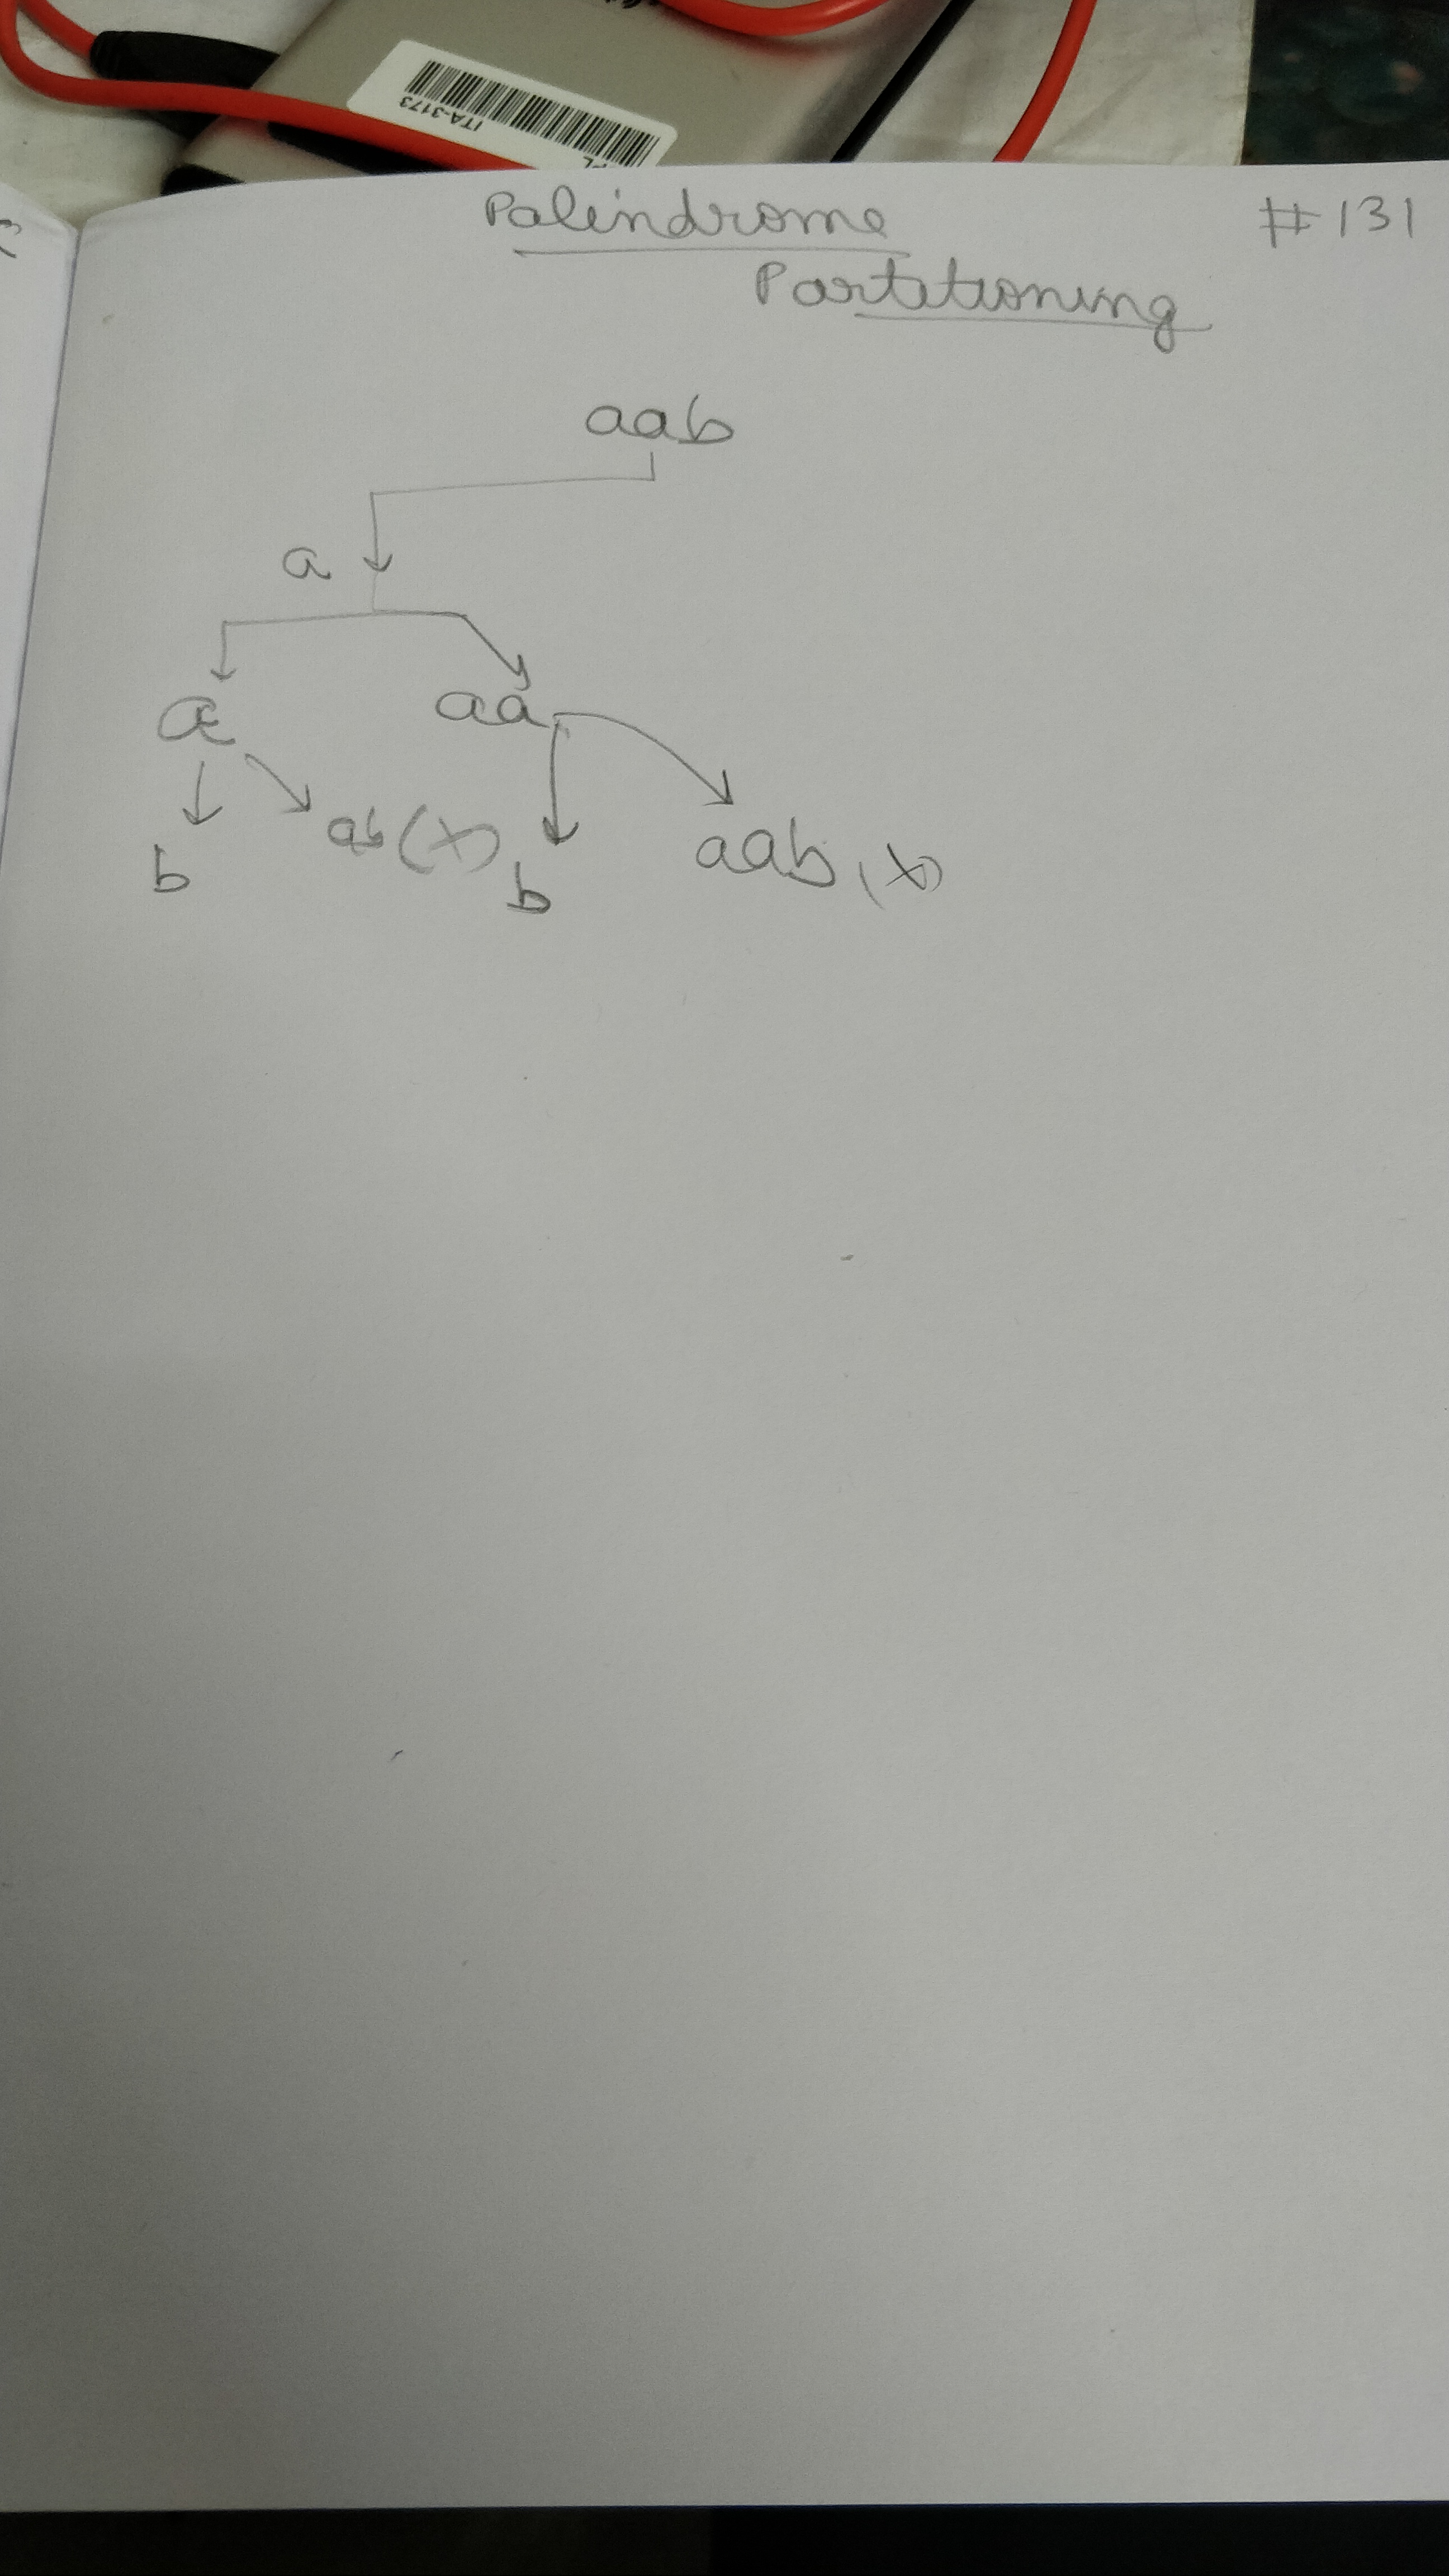 ITA-3173
Palindrome #131
Partitioning
aab
a
a aa
b ab (x) b aab (x)